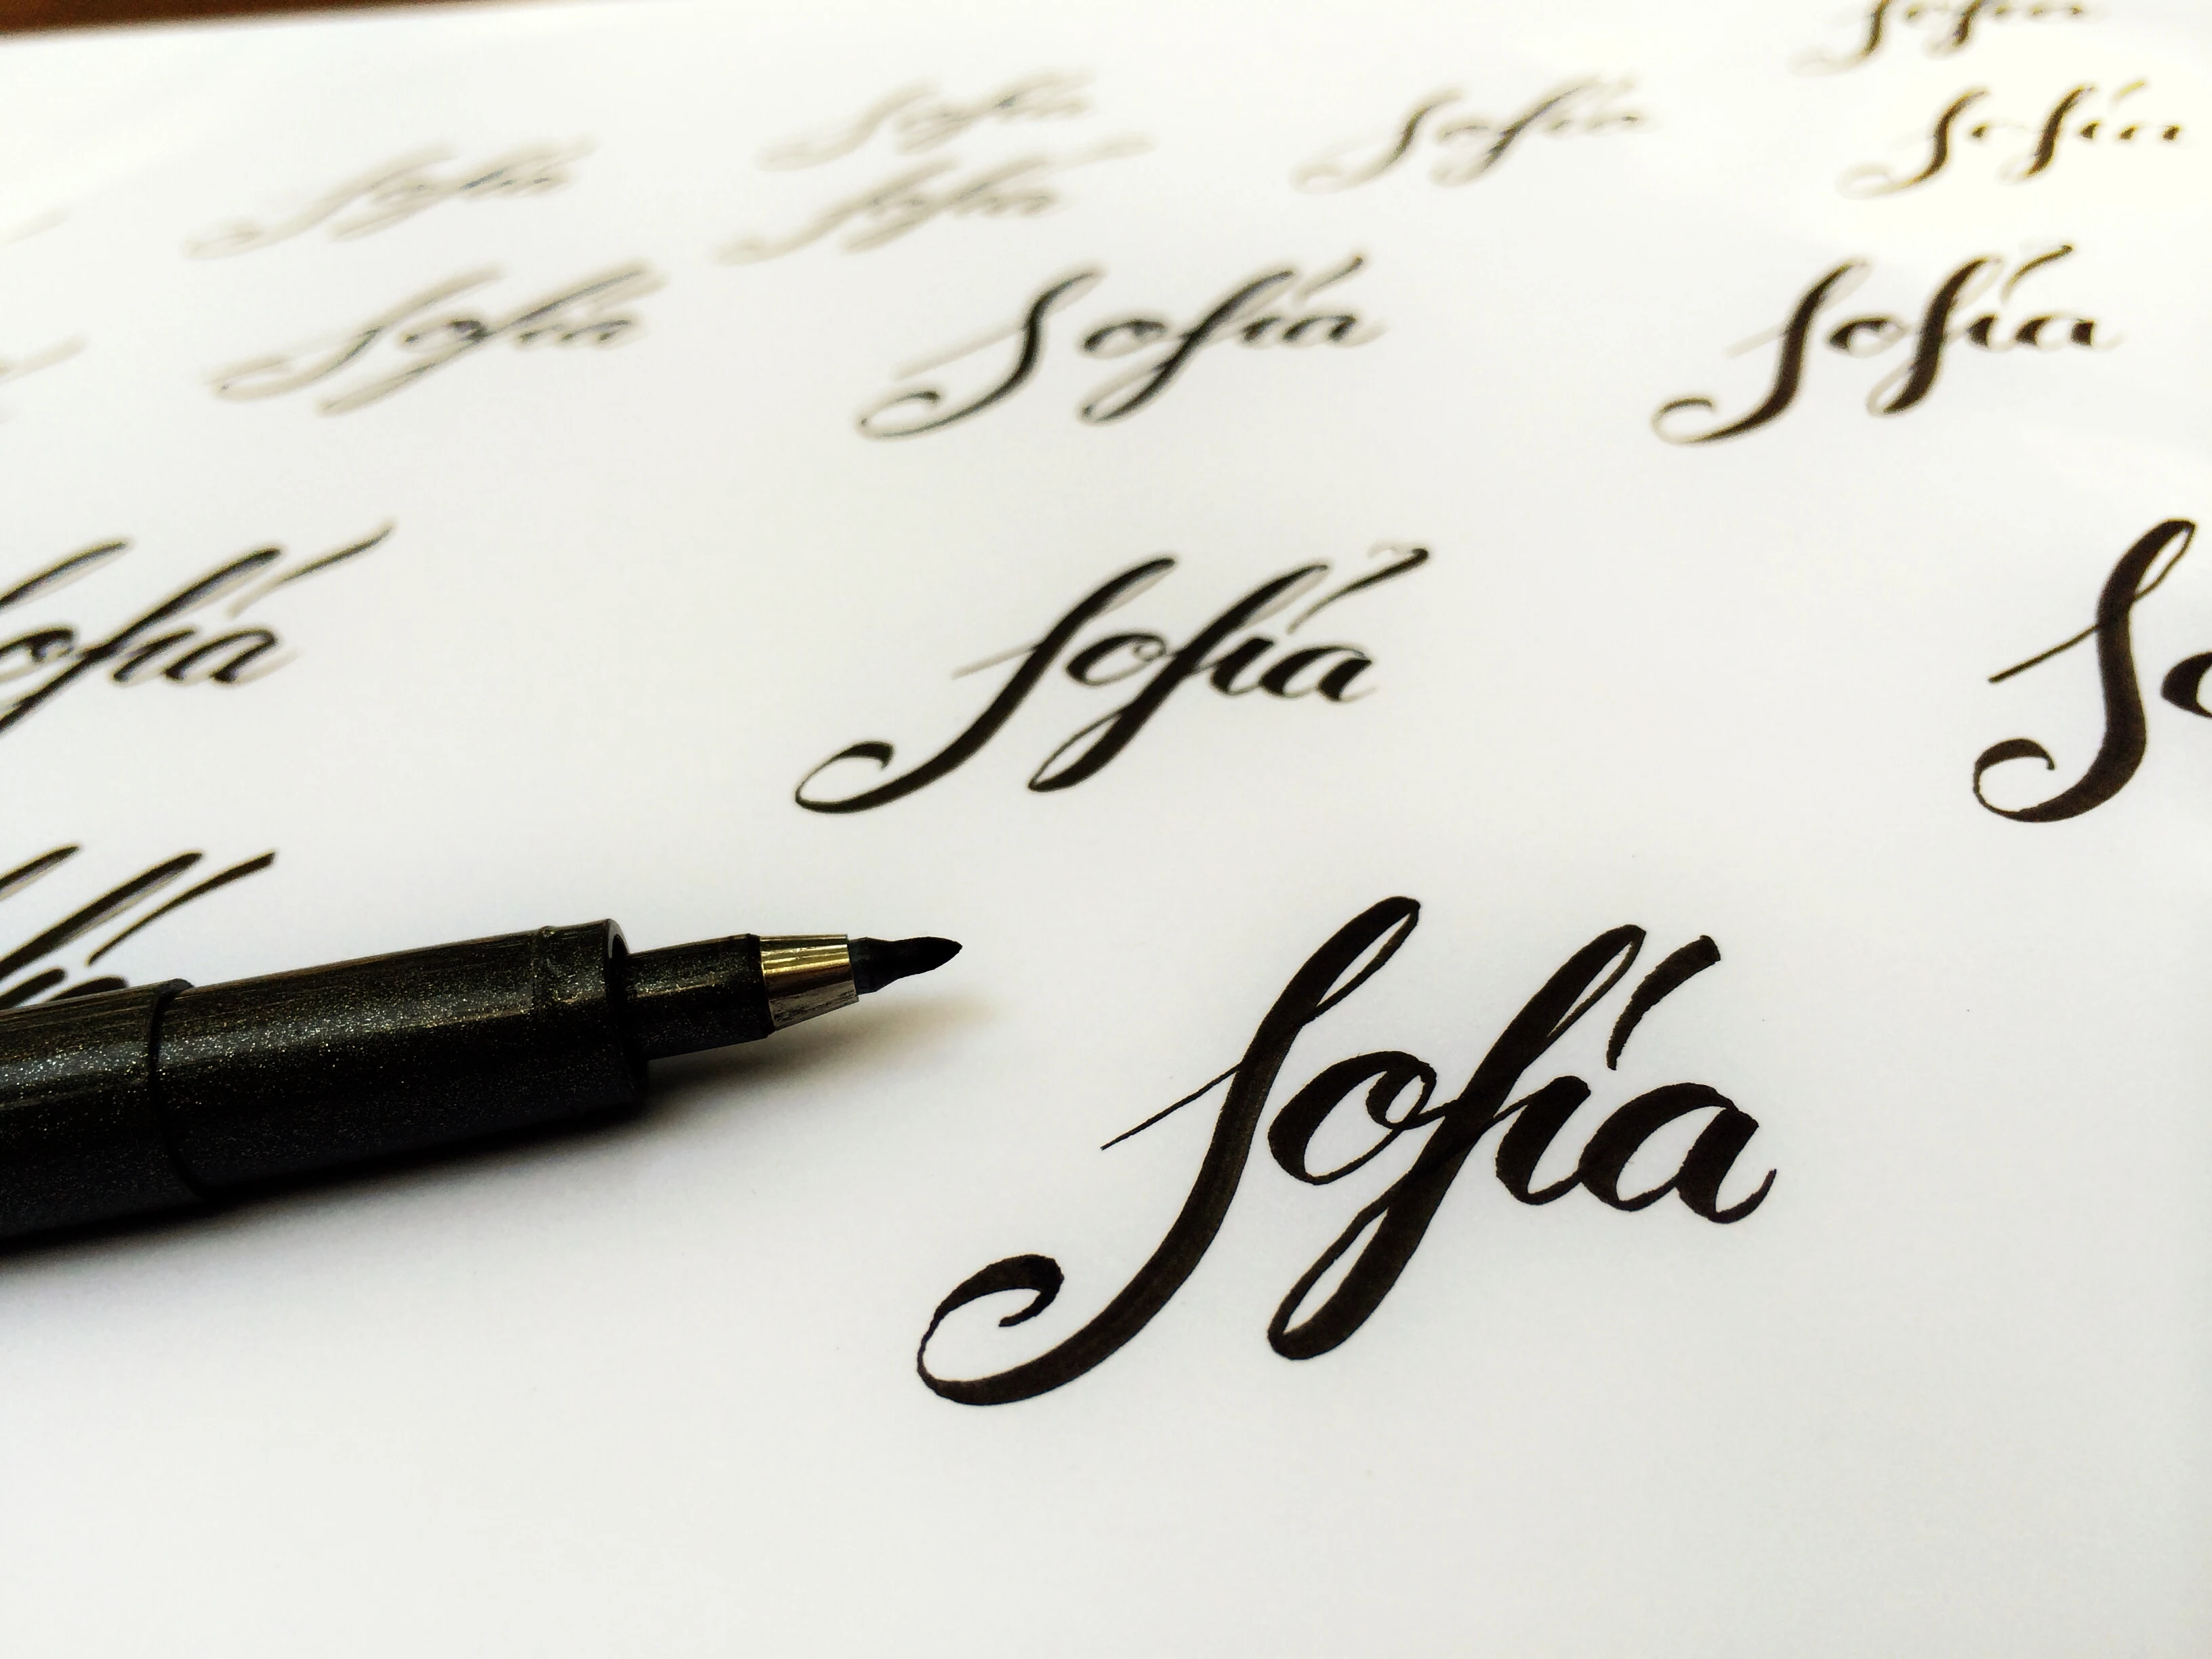 Sofia
Sofía Sofía
Sofía Sofía
Sofía
Sofía Sofía Sofía
Sofía
Sofía